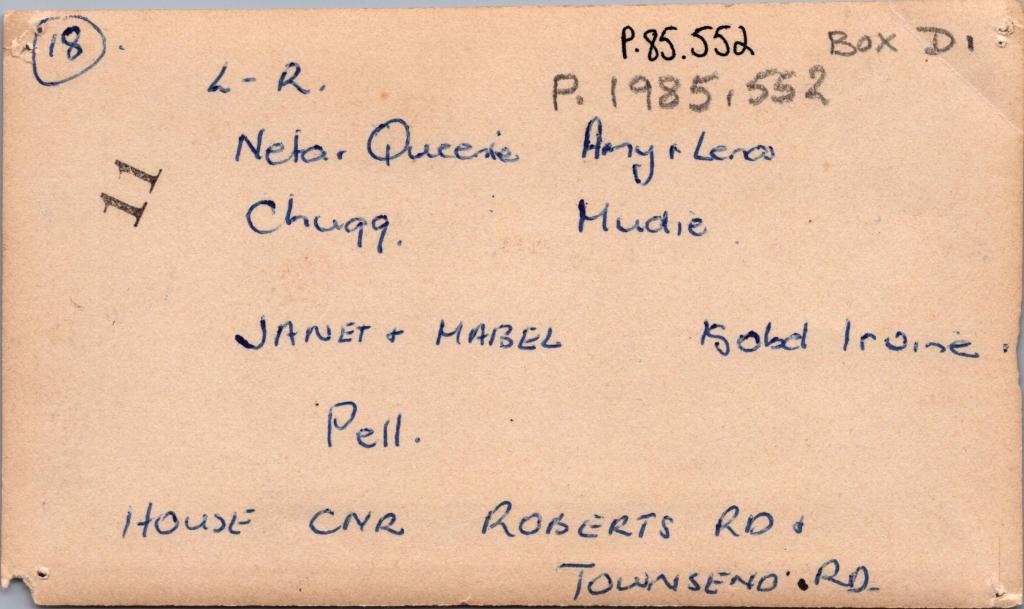 18
P.85.552 BOX D1
L-R.
P. 1985.552
Neta + Queenie Amy + Lena
11
Chugg. Mudie
JANET + MABEL Isobel Irvine.
Pell.
HOUSE CNR ROBERTS RD +
TOWNSEND RD-